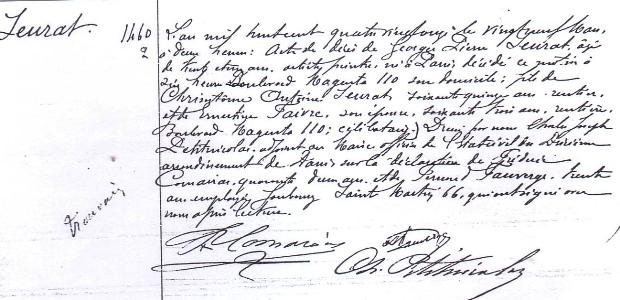 Seurat. 1460
2
L'an mil huit cent quatre vingt onze le vingt neuf Mars,
à deux heures: Acte de décès de Georges Pierre Seurat, âgé
de trente et un ans, artiste peintre, né à Paris, décédé ce matin à
six heures Boulevard Magenta 110 son domicile; fils de
Chrysostome Antoine Seurat, soixante quinze ans, rentier,
et de Ernestine Faivre, son épouse, soixante trois ans, rentière,
Boulevard Magenta 110; célibataire. Dressé par nous Charles Joseph
Petitnicolas, adjoint au Maire, officier de l'état civil du dixième
arrondissement de Paris sur la déclaration de
Comarias, quarante deux ans, et de Fernand Fauverge, trente
ans, employés, faubourg Saint Martin 66, qui ont signé avec
nous après lecture.
A Comarias
Ch. Petitnicolas